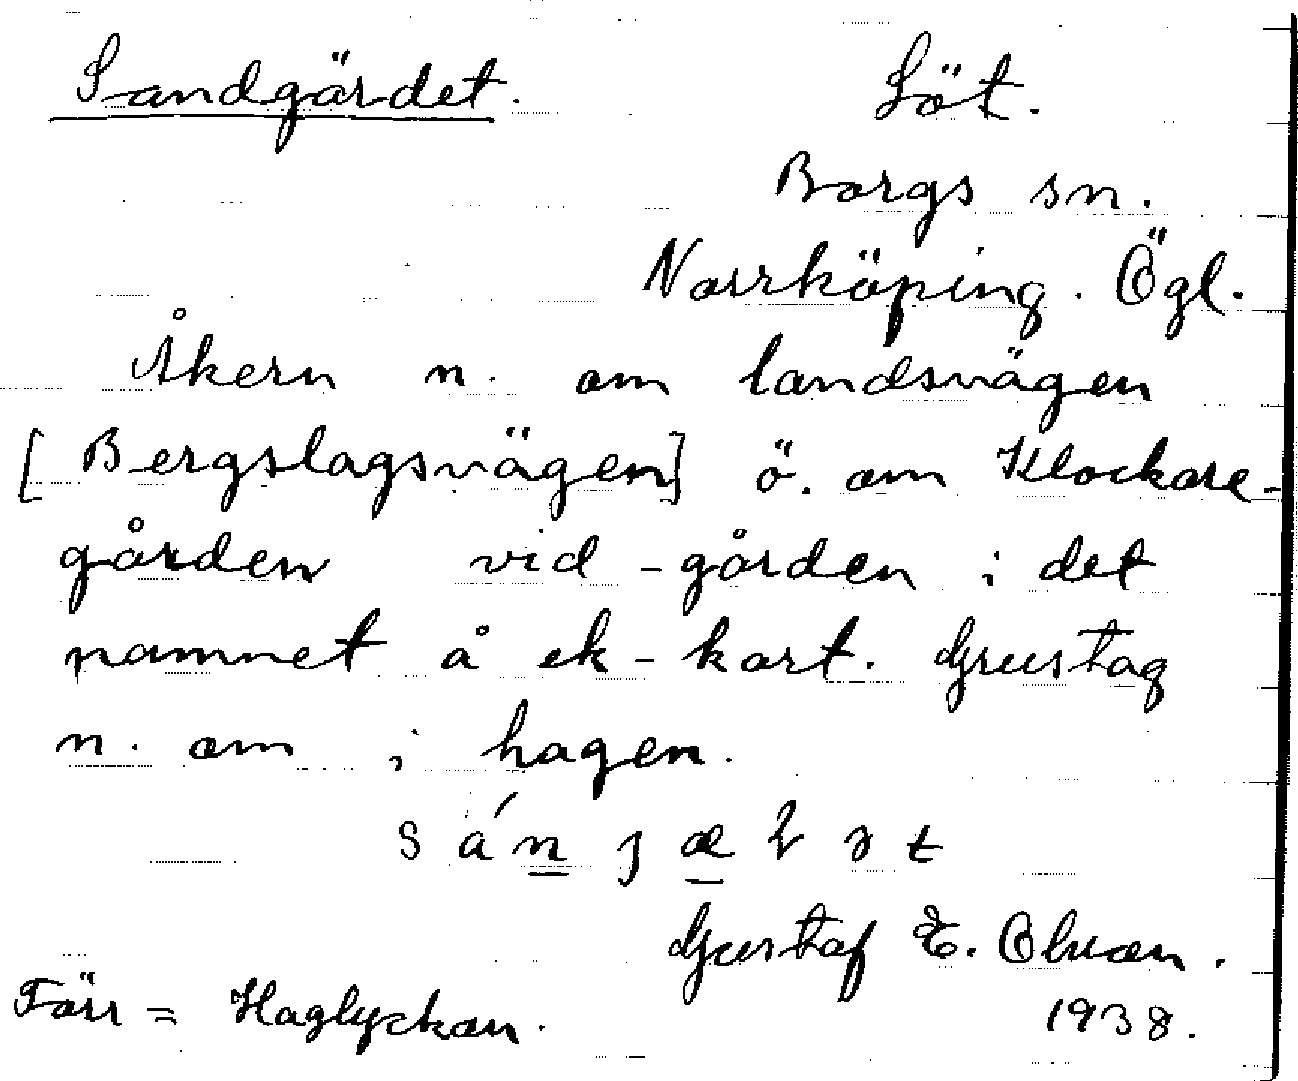 Sandgärdet. Löt.
Borgs sn.
Norrköping. Ögl.
Åkern n. om landsvägen
[Bergslagsvägen] ö. om Klockare-
gården vid -gården i det
namnet å ek-kart. Grustag
n. om i hagen.
Gustaf E. Olson.
Förr = Haglyckan. 1938.